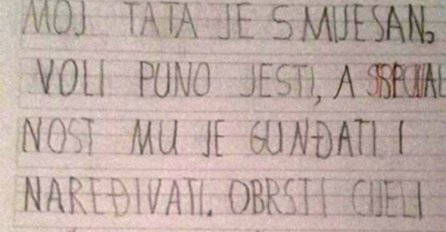 MOJ TATA JE SMIJEŠAN,
VOLI PUNO JESTI, A SPECIJAL
NOST MU JE GUNĐATI I
NAREĐIVATI. OBRSTI CIJELI